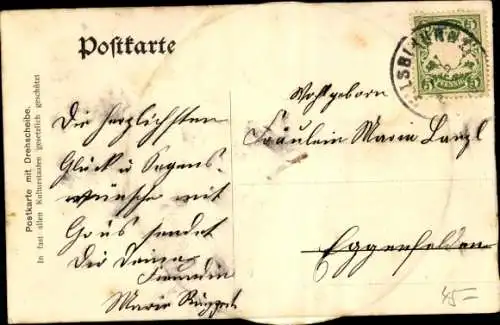 Postkarte
Postkarte mit Drehscheibe.
In fast allen Kulturstaaten gesetzlich geschützt
5 5
PFENNIG
Die herzlichsten
Glück u. Segens-
wünsche mit
Grus sendet
Dir Deine
Freundin
Marie
Wohlgeborn
Fräulein Maria Lanzl
Eggenfelden
45-